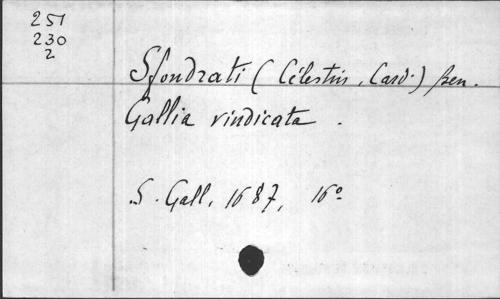 251
230
2
Sfondrati (Célestin, Card.)
Gallia vindicata.
S. Gall, 1687, 16º